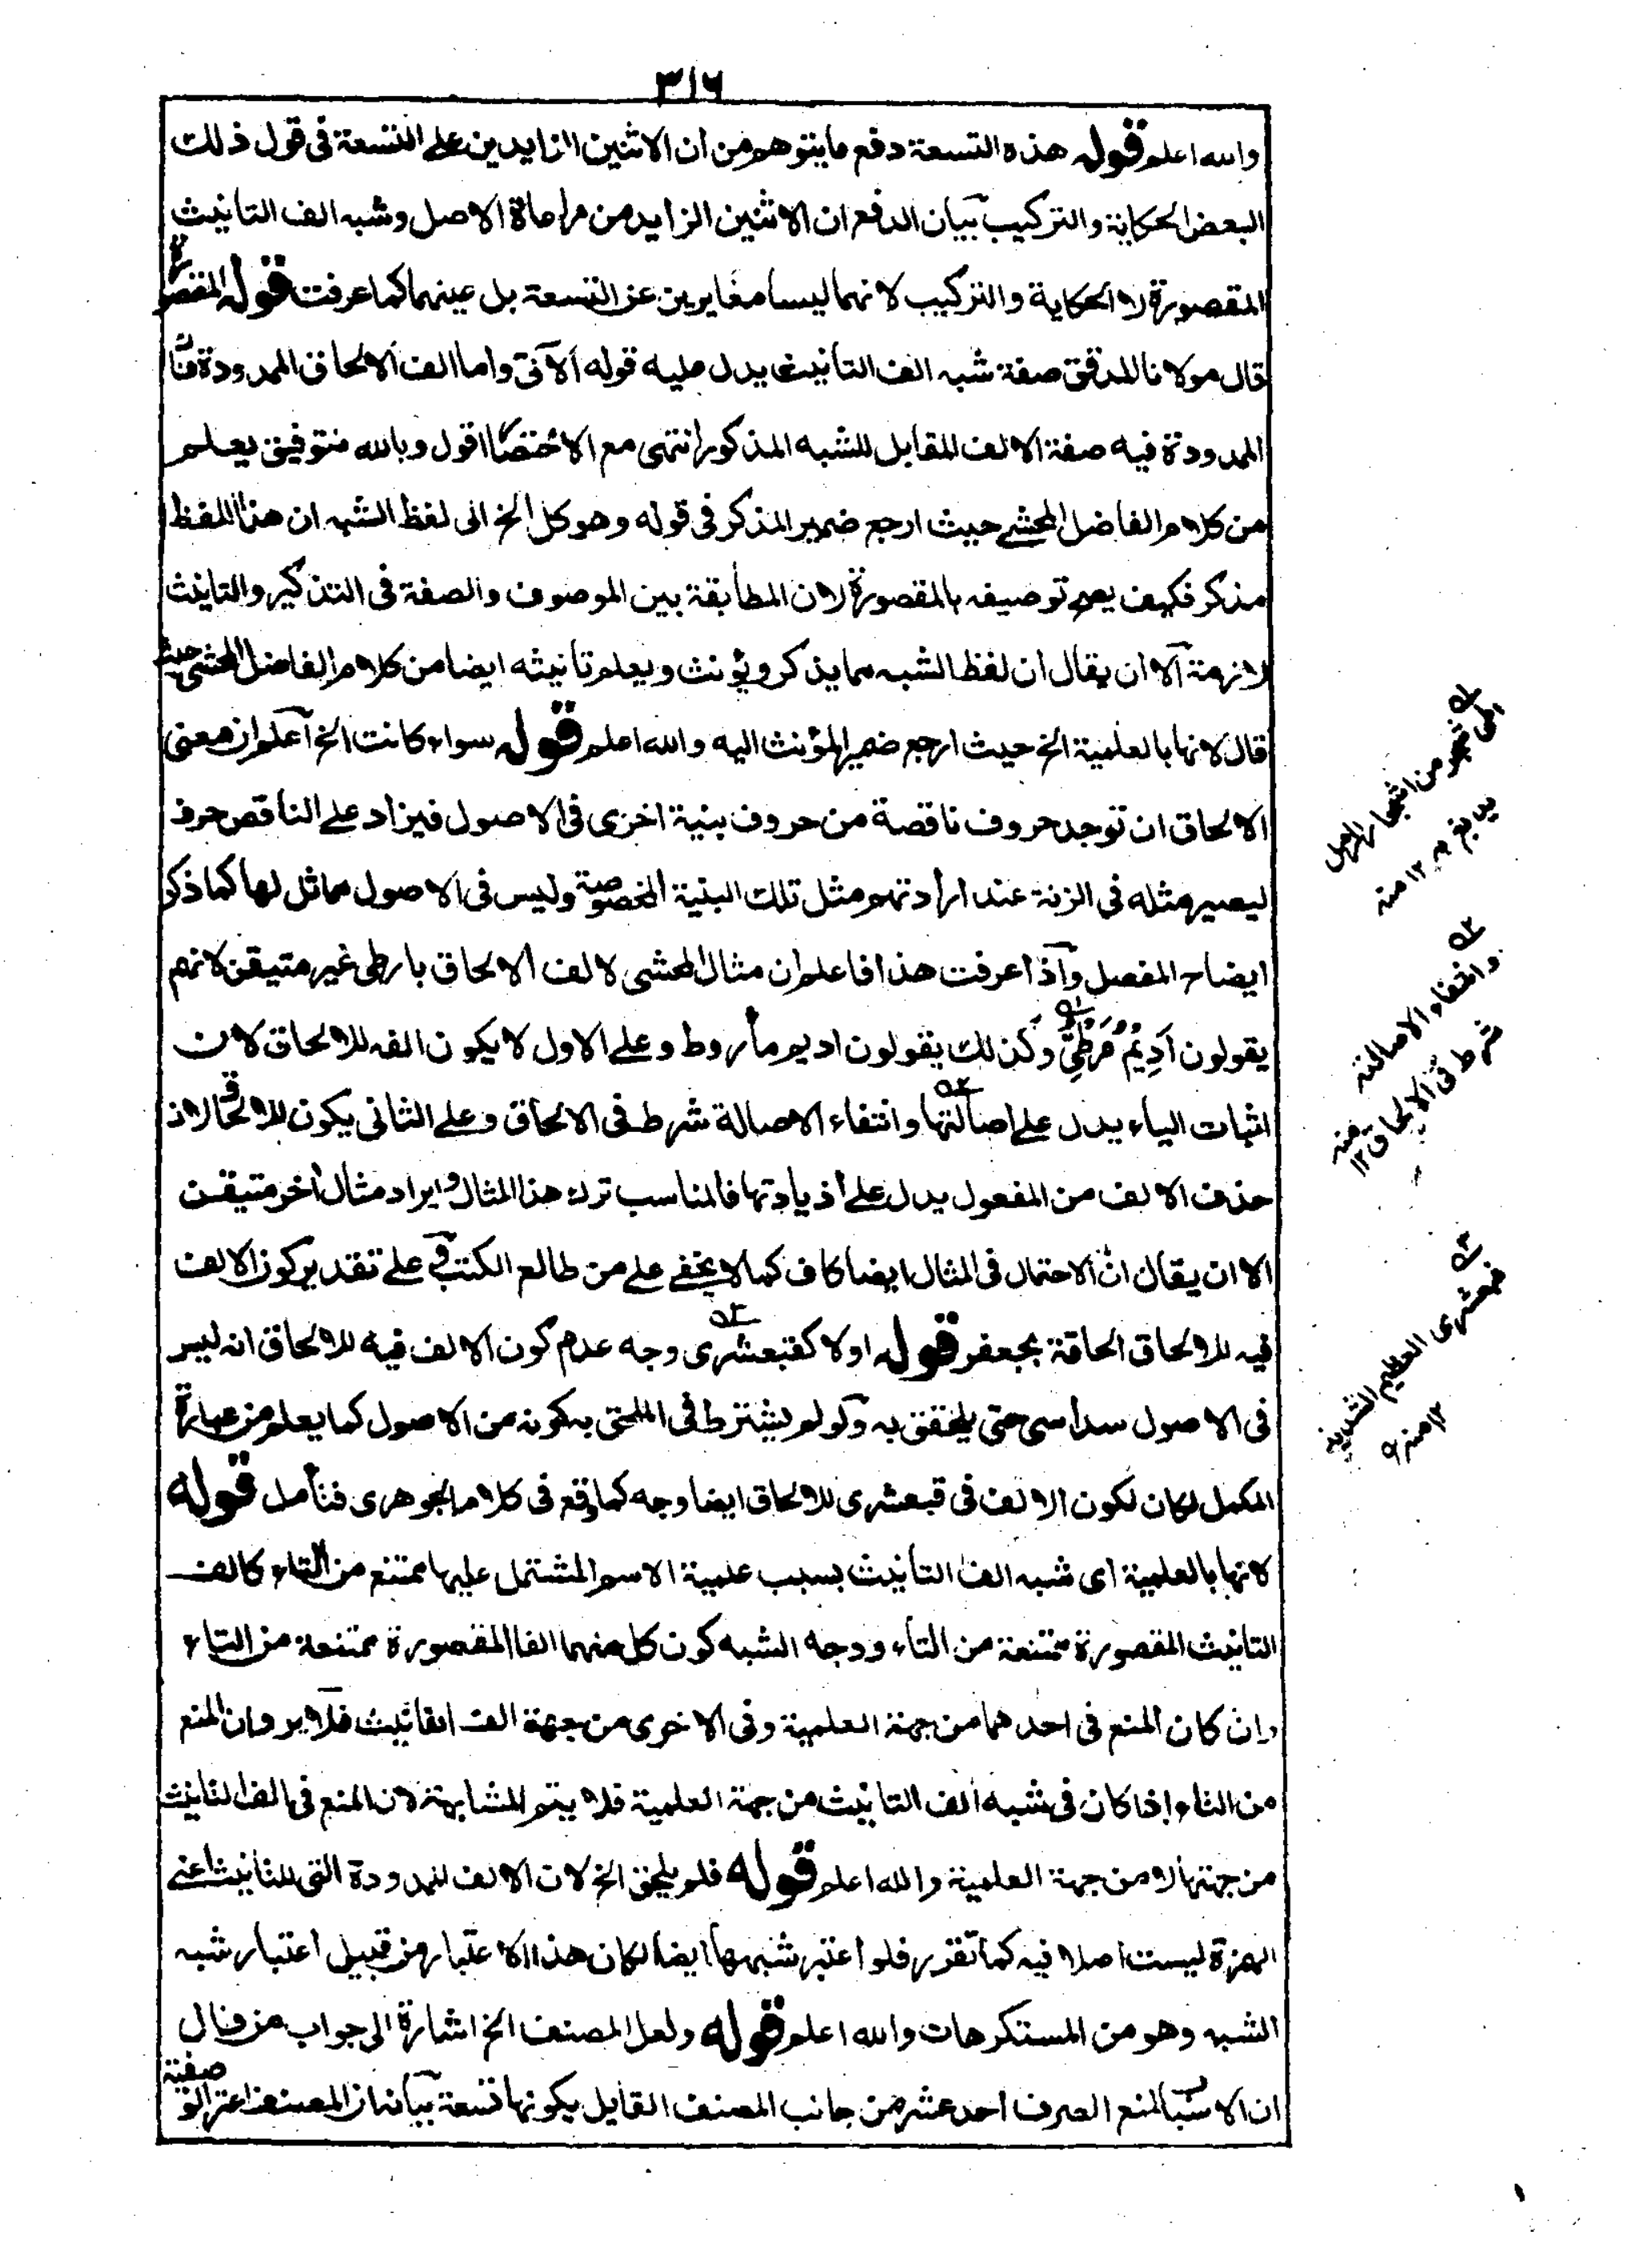 ٣١٦
والله اعلم قوله هذه التسعة دفع ما يتوهم من ان الاثنين الزايدين على التسعة فى قول ذلك
البعض الحكاية والتركيب بيان الدفع ان الاثنين الزايد من مراعاة الاصل وشبه الف التانيث
المقصورة لا الحكاية والتركيب لانهما ليسا مغايرين عن التسعة بل عينهما كما عرفت قوله المقصورة
قال مولانا المدقق صفة شبه الف التأنيث يدل عليه قوله الآتى واما الف الالحاق الممدودة فان
الممدودة فيه صفة الالف المقابل للشبه المذكور انتهى مع الاختصار اقول وبالله توفيق يعلم
من كلام الفاضل المحشے حيث ارجع ضمير المذكر فى قوله وهو كل الخ الى لفظ الشبه ان هذا اللفظ
مذكر فكيف يصح توصيفه بالمقصورة لان المطابقة بين الموصوف والصفة فى التذكير والتانيث
لازمة آلا ان يقال ان لفظ الشبه مما يذكر ويؤنث ويعلم تانيثه ايضا من كلام الفاضل المحشى حيث
قال لانها بالعلمية الخ حيث ارجع ضمير المؤنث اليه والله اعلم قوله سواء كانت الخ آعلم ان معنى
الالحاق ان توجد حروف ناقصة من حروف بنية اخرى فى الاصول فيزاد على الناقص حرف
ليصير مثله فى الزنة عند ارادتهم مثل تلك البنية المخصوصة وليس فى الاصول مماثل لها كما ذكر
ايضاح المفصل وآذا عرفت هذا فاعلم ان مثال المحشى لالف الالحاق بارطى غير متيقن لانهم
يقولون اَدِيْمٌ مَرْطِىٌّ وكذلك يقولون اديم مأروط وعلى الاول لا يكون الفه للالحاق لان
اثبات الياء يدل على اصالتها وانتفاء الاصالة شرط فى الالحاق وعلى الثانى يكون للالحاق لان
حذف الالف من المفعول يدل على ازيادتها فالمناسب ترك هذا المثال وايراد مثال آخر متيقن
الا ان يقال ان الاحتمال فى المثال ايضا كاف كما لا يخفے على من طالع الكتب وعلى تقدير كون الالف
فيه للالحاق الحاقة بجعفر قوله اولا كقبعشرى وجه عدم كون الالف فيه للالحاق انه ليس
فى الاصول سداسى حتى يلحقق به ولو لم يشترط فى الملحق به كونه من الاصول كما يعلم من عبارة
المكمل لكان لكون الالف فى قبعشرى للالحاق ايضا وجه كما وقع فى كلام الجوهرى فتأمل قوله
لانها بالعلمية اى شبه الف التأنيث بسبب علمية الاسم المشتمل عليها ممتنع من التاء كالف
التانيث المقصورة ممتنعة من التاء ووجه الشبه كون كل منهما الفا المقصورة ممتنعة من التاء
وان كان المنع فى احدهما من جهة العلمية وفى الاخرى من جهة الف التانيث فلا يرد ان المنع
من التاء إذا كان فى شبه الف التانيث من جهة العلمية فلا يتم المشابهة لان المنع فى الف التانيث
من جهتها لا من جهة العلمية والله اعلم قوله فلم يلحق الخ لان الالف الممدودة التى للتانيث اعنے
الهمزة ليست اصلا فيه كما تقرر فلو اعتبر شبهها ايضا لكان هذا الاعتبار من قبيل اعتبار شبه
الشبه وهو من المستكرهات والله اعلم قوله ولعل المصنف الخ اشارة الى جواب من قال
ان الاسباب لمنع الصرف احد عشر من جانب المصنف القايل بكونها تسعة بيانه ان المصنف اعتبر الوصفية
من اشجار الرمل
يدبغ به ١٢ منه
وانتفاء الاصالة
شرط فى الالحاق ١٢ منه
قبعشرى العظيم الشديد
١٢ منه